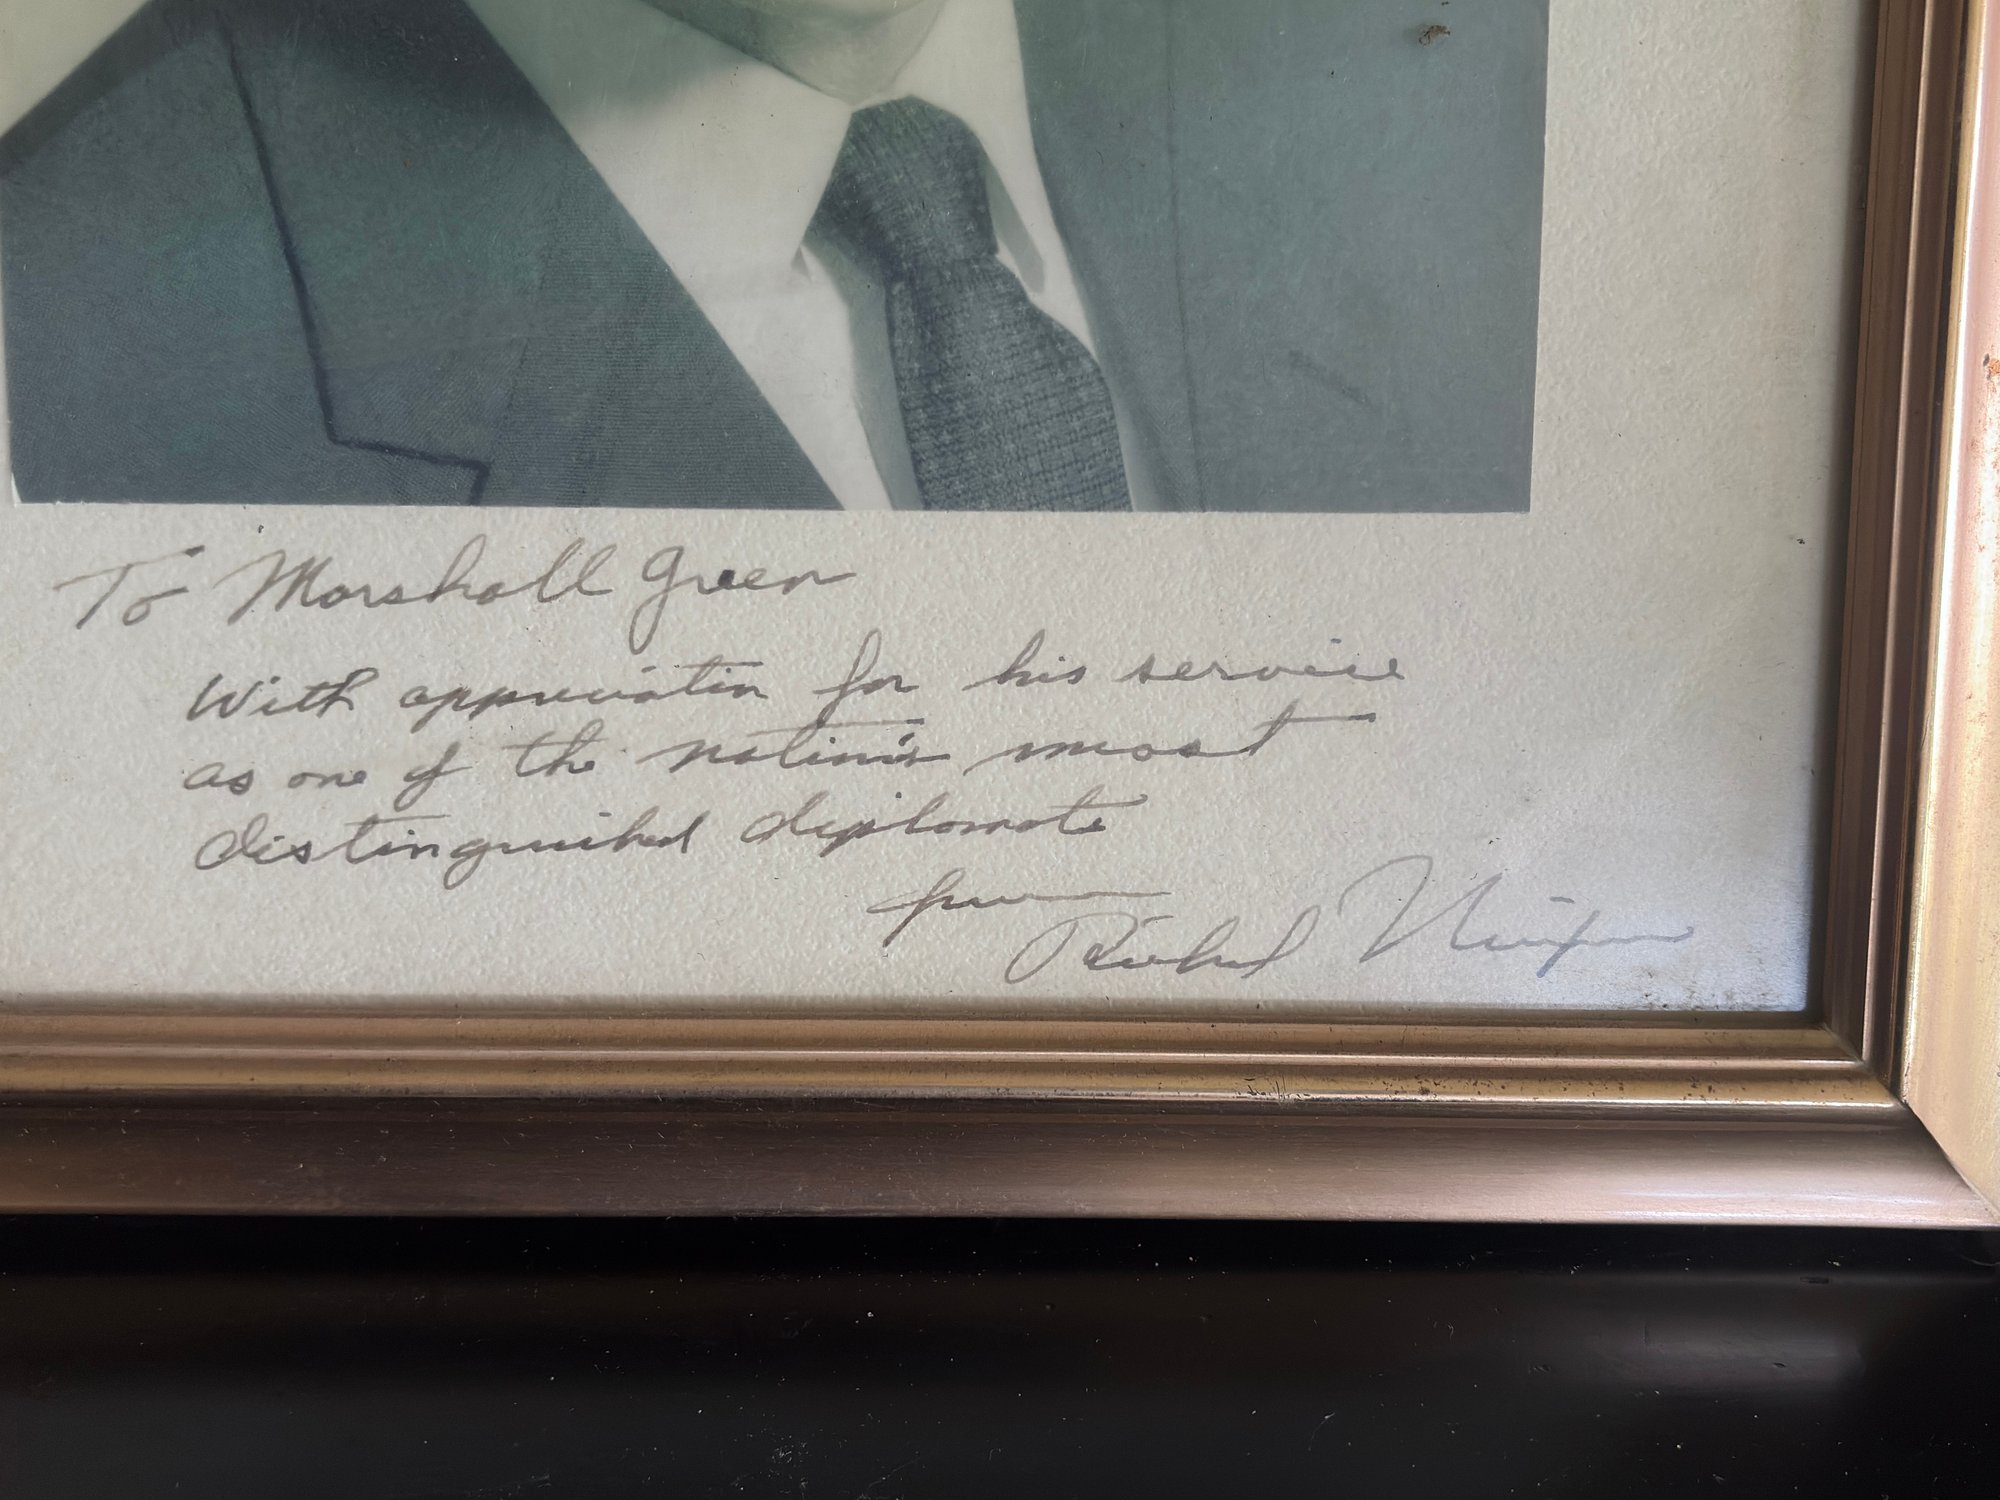 To Marshall Green
With appreciation for his service
as one of the nation's most
distinguished diplomats
from
Richard Nixon